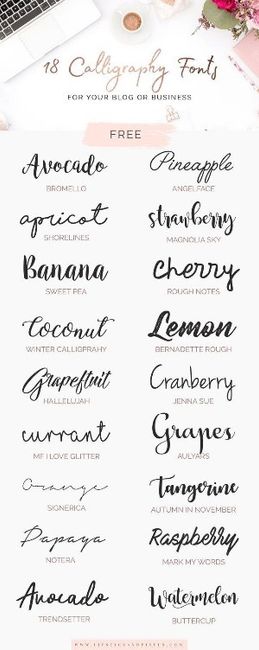 18 Calligraphy Fonts
FOR YOUR BLOG OR BUSINESS
FREE
Avocado Pineapple
BROMELLO ANGELFACE
apricot strawberry
SHORELINES MAGNOLIA SKY
Banana Cherry
SWEET PEA ROUGH NOTES
Coconut Lemon
WINTER CALLIGFRAHY BERNADETTE ROUGH
Grapefluit Cranberry
HALLELUJAH JENNA SUE
currant Grapes
MF I LOVE GLITTER AULYARS
Orange Tangerine
SIGNERICA AUTUMN IN NOVEMBER
Papaya Raspberry
NOTERA MARK MY WORDS
Avocado Watermelon
TRENDSETTER BUTTERCUP